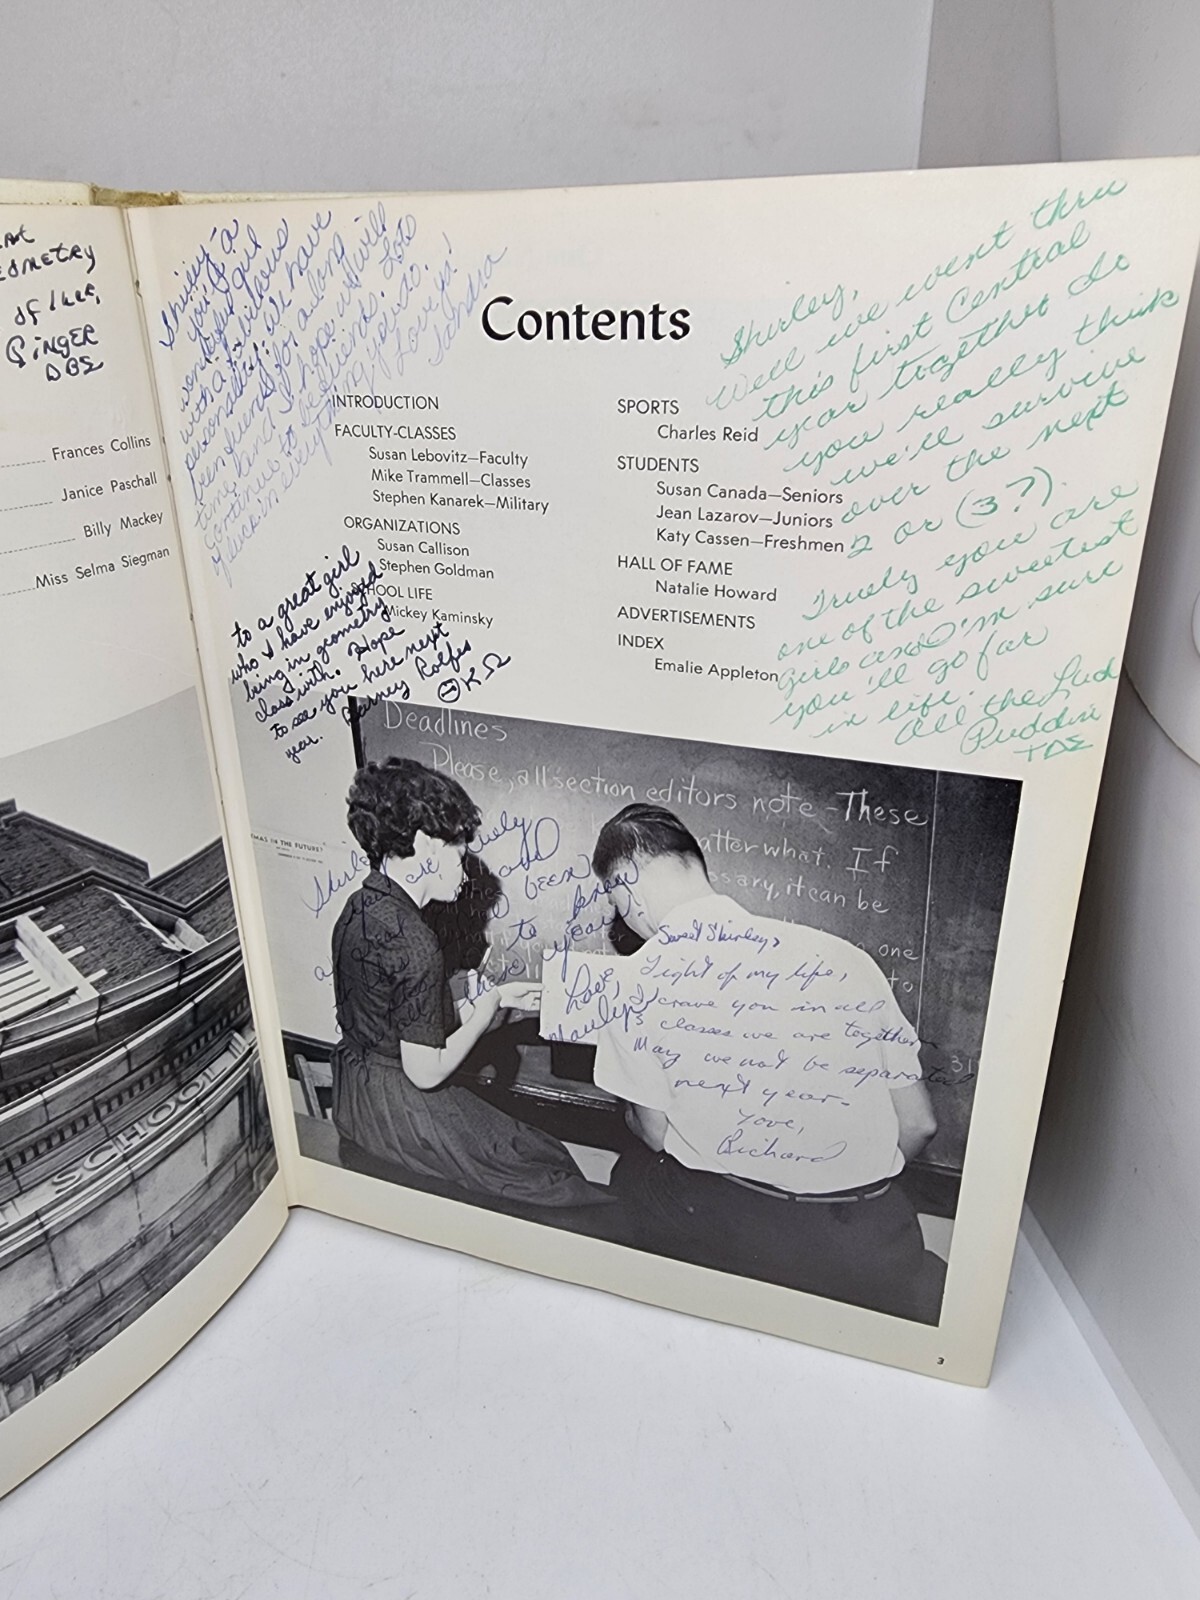 EOMETRY
of luck,
GINGER
DBS
Frances Collins
Janice Paschall
Billy Mackey
Miss Selma Siegman
SCHOOL
Shirley-
wonderful girl
with a
personality. We have
been friends for a long
time and I hope we will
continue to be friends. Lots
of luck in everything you do.
Love ya!
Sandra
Contents
INTRODUCTION
FACULTY-CLASSES
Susan Lebovitz—Faculty
Mike Trammell—Classes
Stephen Kanarek—Military
ORGANIZATIONS
Susan Callison
Stephen Goldman
SCHOOL LIFE
Mickey Kaminsky
SPORTS
Charles Reid
STUDENTS
Susan Canada—Seniors
Jean Lazarov—Juniors
Katy Cassen—Freshmen
HALL OF FAME
Natalie Howard
ADVERTISEMENTS
INDEX
Emalie Appleton
Shurley,
Well we went thru
this first Central
year together do
you really think
we'll survive
over the next
2 or (3?).
Truely you are
one of the sweetest
girls and I'm sure
you'll go far
in life.
All the Luck
Puddin
TDS
to a great girl
who I have enjoyed
being in geometry
class with. Hope
to see you here next
year. Barney Rolfes
ΘKΩ
Deadlines
Please, all section editors note - These
matter what. If
ssary, it can be
one
to
31
MAS IN THE FUTURE?
you are
a great
been
to know
these years.
Love,
Sweet Shirley,
Light of my life,
I crave you in all
3 classes we are together
May we not be separated
next year.
Love,
Richard
3